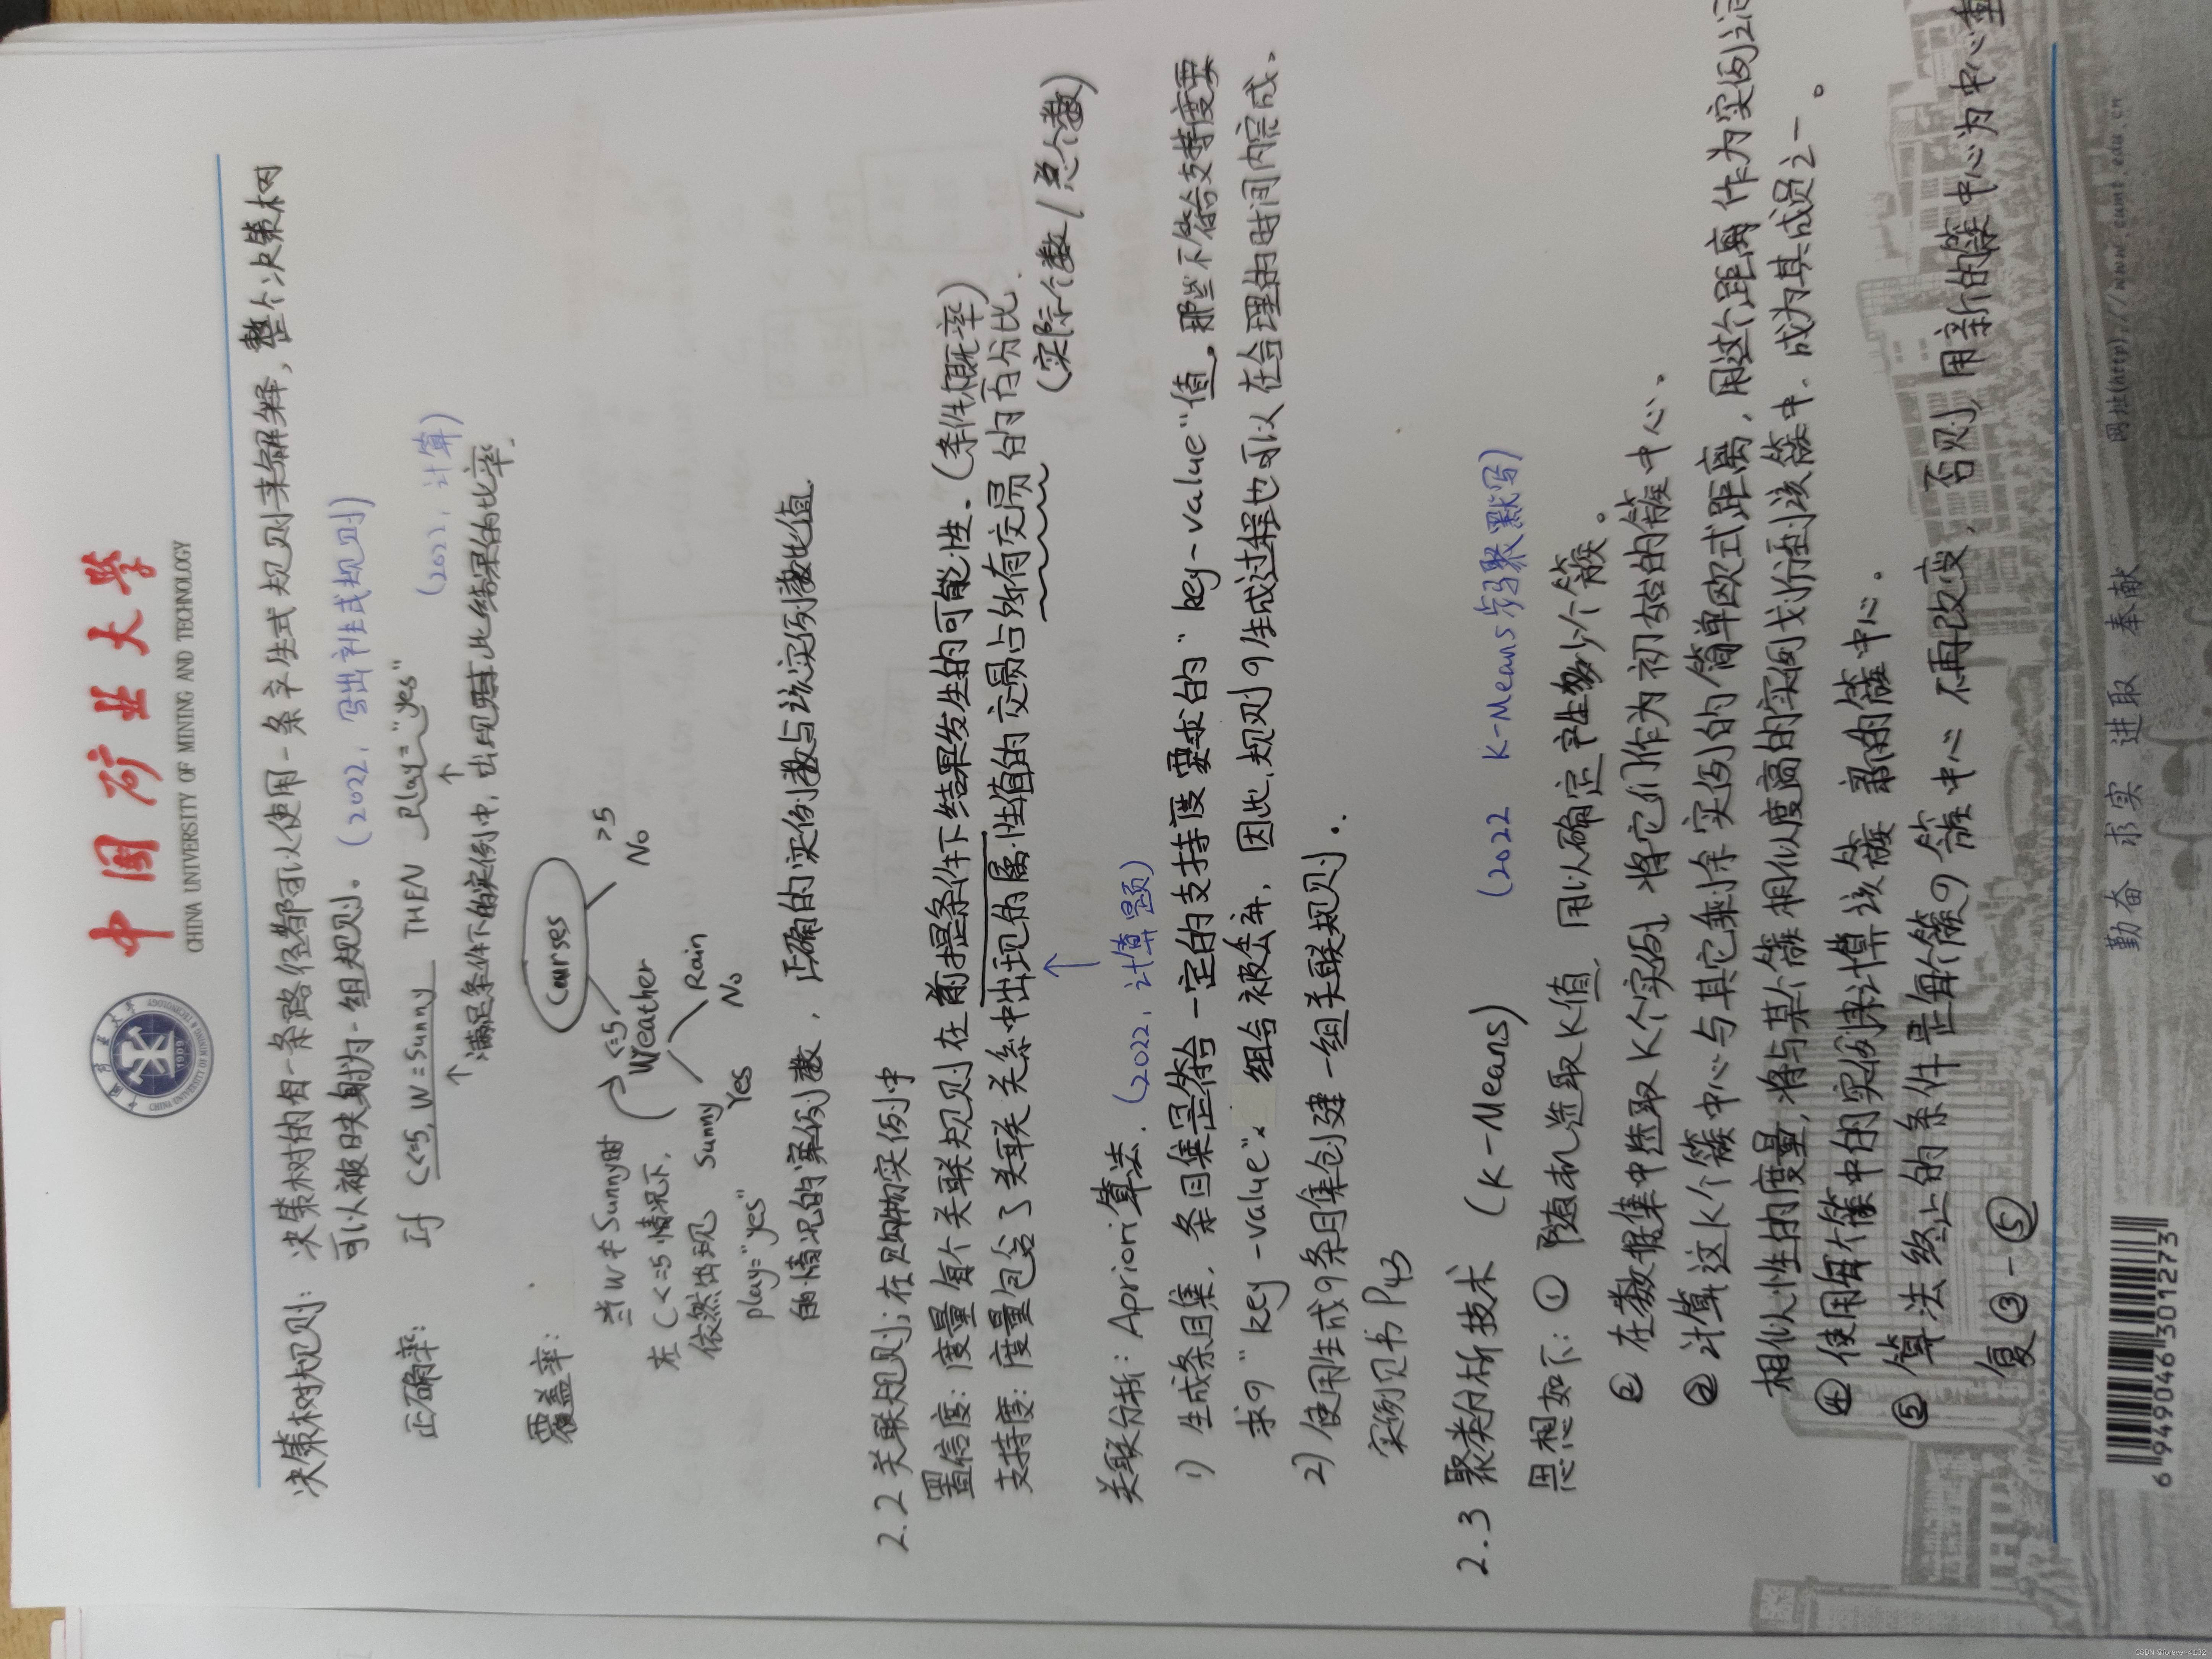 中国矿业大学
CHINA UNIVERSITY OF MINING AND TECHNOLOGY
决策树规则: 决策树的每一条路径都可以使用一条产生式规则来解释, 整个决策树
可以被映射为一组规则。(2022, 写出产生式规则)
正确率: If C<=5, W=Sunny THEN Play="yes"
(2022, 计算)
↑满足条件下的实例中, 出现此结果的比率.
覆盖率:
Courses
<=5
>5
Weather
No
Sunny
Rain
Yes
No
当W≠Sunny时
在C<=5情况下,
依然出现
play="yes"
的情况的案例数, 正确的实例数与该实例数比值.
2.2 关联规则; 在购物实例中
置信度: 度量每个关联规则在前提条件下结果发生的可能性. (条件概率)
支持度: 度量包含了关联关系中出现的属性值的交易占所有交易的百分比.
(实际个数/总个数)
关联分析: Apriori算法. (2022, 计算题)
1) 生成条目集. 条目集是符合一定的支持度要求的"key-value"值. 那些不符合支持度要
求的"key-value". 组合被丢弃, 因此, 规则的生成过程也可以在合理的时间内完成.
2) 使用生成的条目集创建一组关联规则.
实例见书P43
2.3 聚类分析技术 (K-Means) (2022 K-Means步骤默写)
思想如下: ① 随机选取K值, 用以确定产生多少个簇。
② 在数据集中选取K个实例, 将它们作为初始的簇中心.
③ 计算这K个簇中心与其它剩余实例的简单欧式距离, 用这个距离作为实例之间
相似性的度量, 将与某个簇相似度高的实例划分到该簇中. 成为其成员之一。
④ 使用每个簇中的实例来计算该簇新的簇中心。
⑤ 算法终止的条件是每个簇的簇中心不再改变, 否则, 用新的簇中心为中心重
复③-⑤
勤奋 求实 进取 奉献
网址(http)://www.cumt.edu.cn
6 949046 301273
CSDN @forever 4132